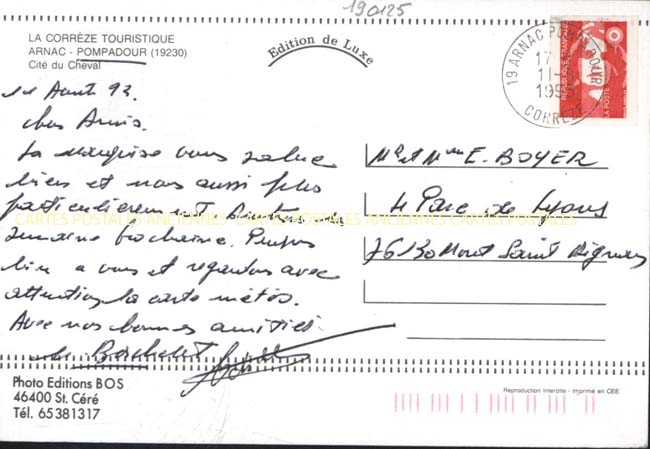 190125
LA CORRÈZE TOURISTIQUE
ARNAC - POMPADOUR (19230)
Cité du Cheval
Edition de Luxe
19 ARNAC POMPADOUR
17
11
199
CORREZE
RÉPUBLIQUE FRANÇAISE
LA POSTE
11 Août 93.
Chers Amis.
La marquise vous salue
bien et nous aussi plus
particulièrement.
semaine prochaine. Pensons
bien a vous et regardons avec
attention la carte météo.
Avec nos bonnes amitiés.
Mr et Mme E. BOYER
4 Parc de Lyons
76130 Mont Saint Aignan
CARTES POSTALES ANCIENNES CARTES POSTALES ANCIENNES CARTES POSTALES ANCIENNES
Photo Editions BOS
46400 St. Céré
Tél. 65381317
Reproduction Interdite - Imprimé en CEE